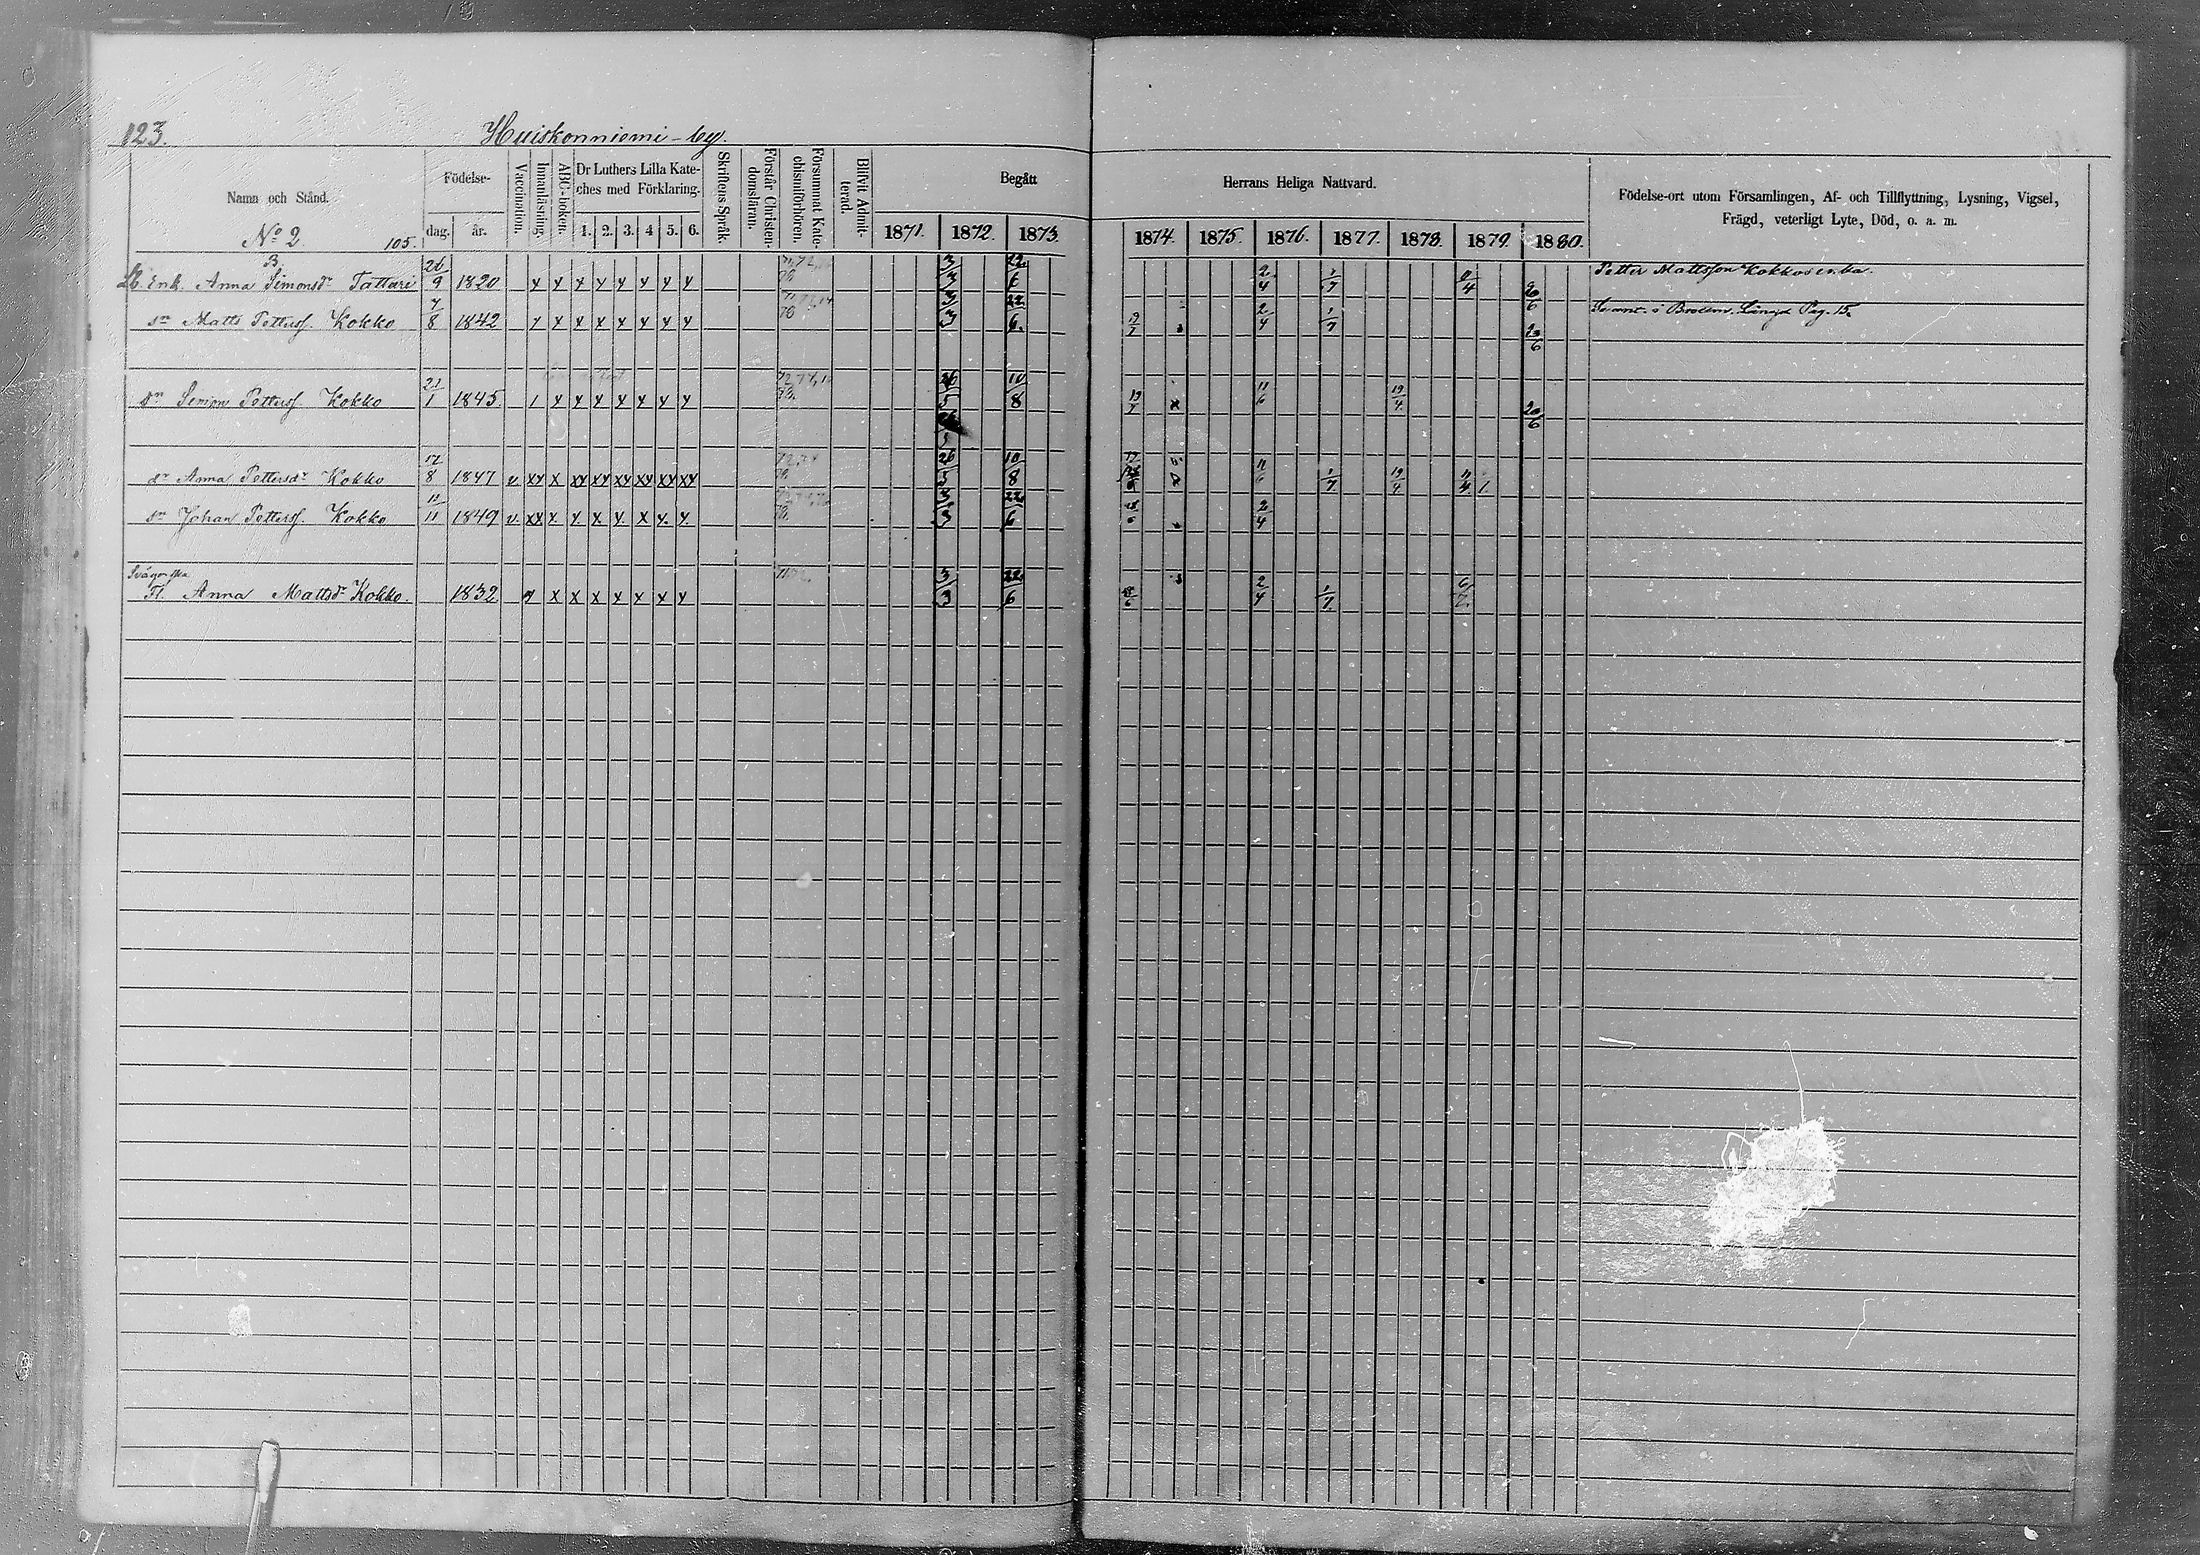 123.
Huiskonniemi-by.
Namn och Stånd.
Födelse-
dag. år.
Vaccination.
Innanläsning.
ABC-boken.
Dr Luthers Lilla Kate-
ches med Förklaring.
1. 2. 3. 4 5. 6.
Skriftens Språk.
Förstår Christen-
domsläran.
Försummat Kate-
chismiförhören.
Blifvit Admit-
terad.
Begått
1871. 1872. 1873.
Herrans Heliga Nattvard.
1874. 1875. 1876. 1877. 1878. 1879. 1880.
Födelse-ort utom Församlingen, Af- och Tillflyttning, Lysning, Vigsel,
Frägd, veterligt Lyte, Död, o. a. m.
No 2 105.
B.
Enk. Anna Simonsdr Tattari 26/9 1820 x x x x x x x x 3/3 22/6 2/4 1/7 20/6 Petter Mattsson Kokkos enka.
sn Matts Petterss. Kokko 7/8 1842 x x x x x x x 3/3 22/6. 19/7 2/4 1/7 20/6 Pag. 15.
sn Simon Petterss. Kokko 21/1 1845. x x x x x x x 26/5 10/8 19/7 11/6 19/4 20/6
dr Anna Pettersdr Kokko 17/8 1847 v xx x xx xx xx xx xx xx 26/5 10/8 11/6 1/7 19/4 11/4
sn Johan Petterss. Kokko 1849 v. xx x x x x x x x 3/3 22/6 2/4
Fl. Anna Mattsdr Kokko. 1832 x x x x x x x 3/3 22/6 2/4 1/7